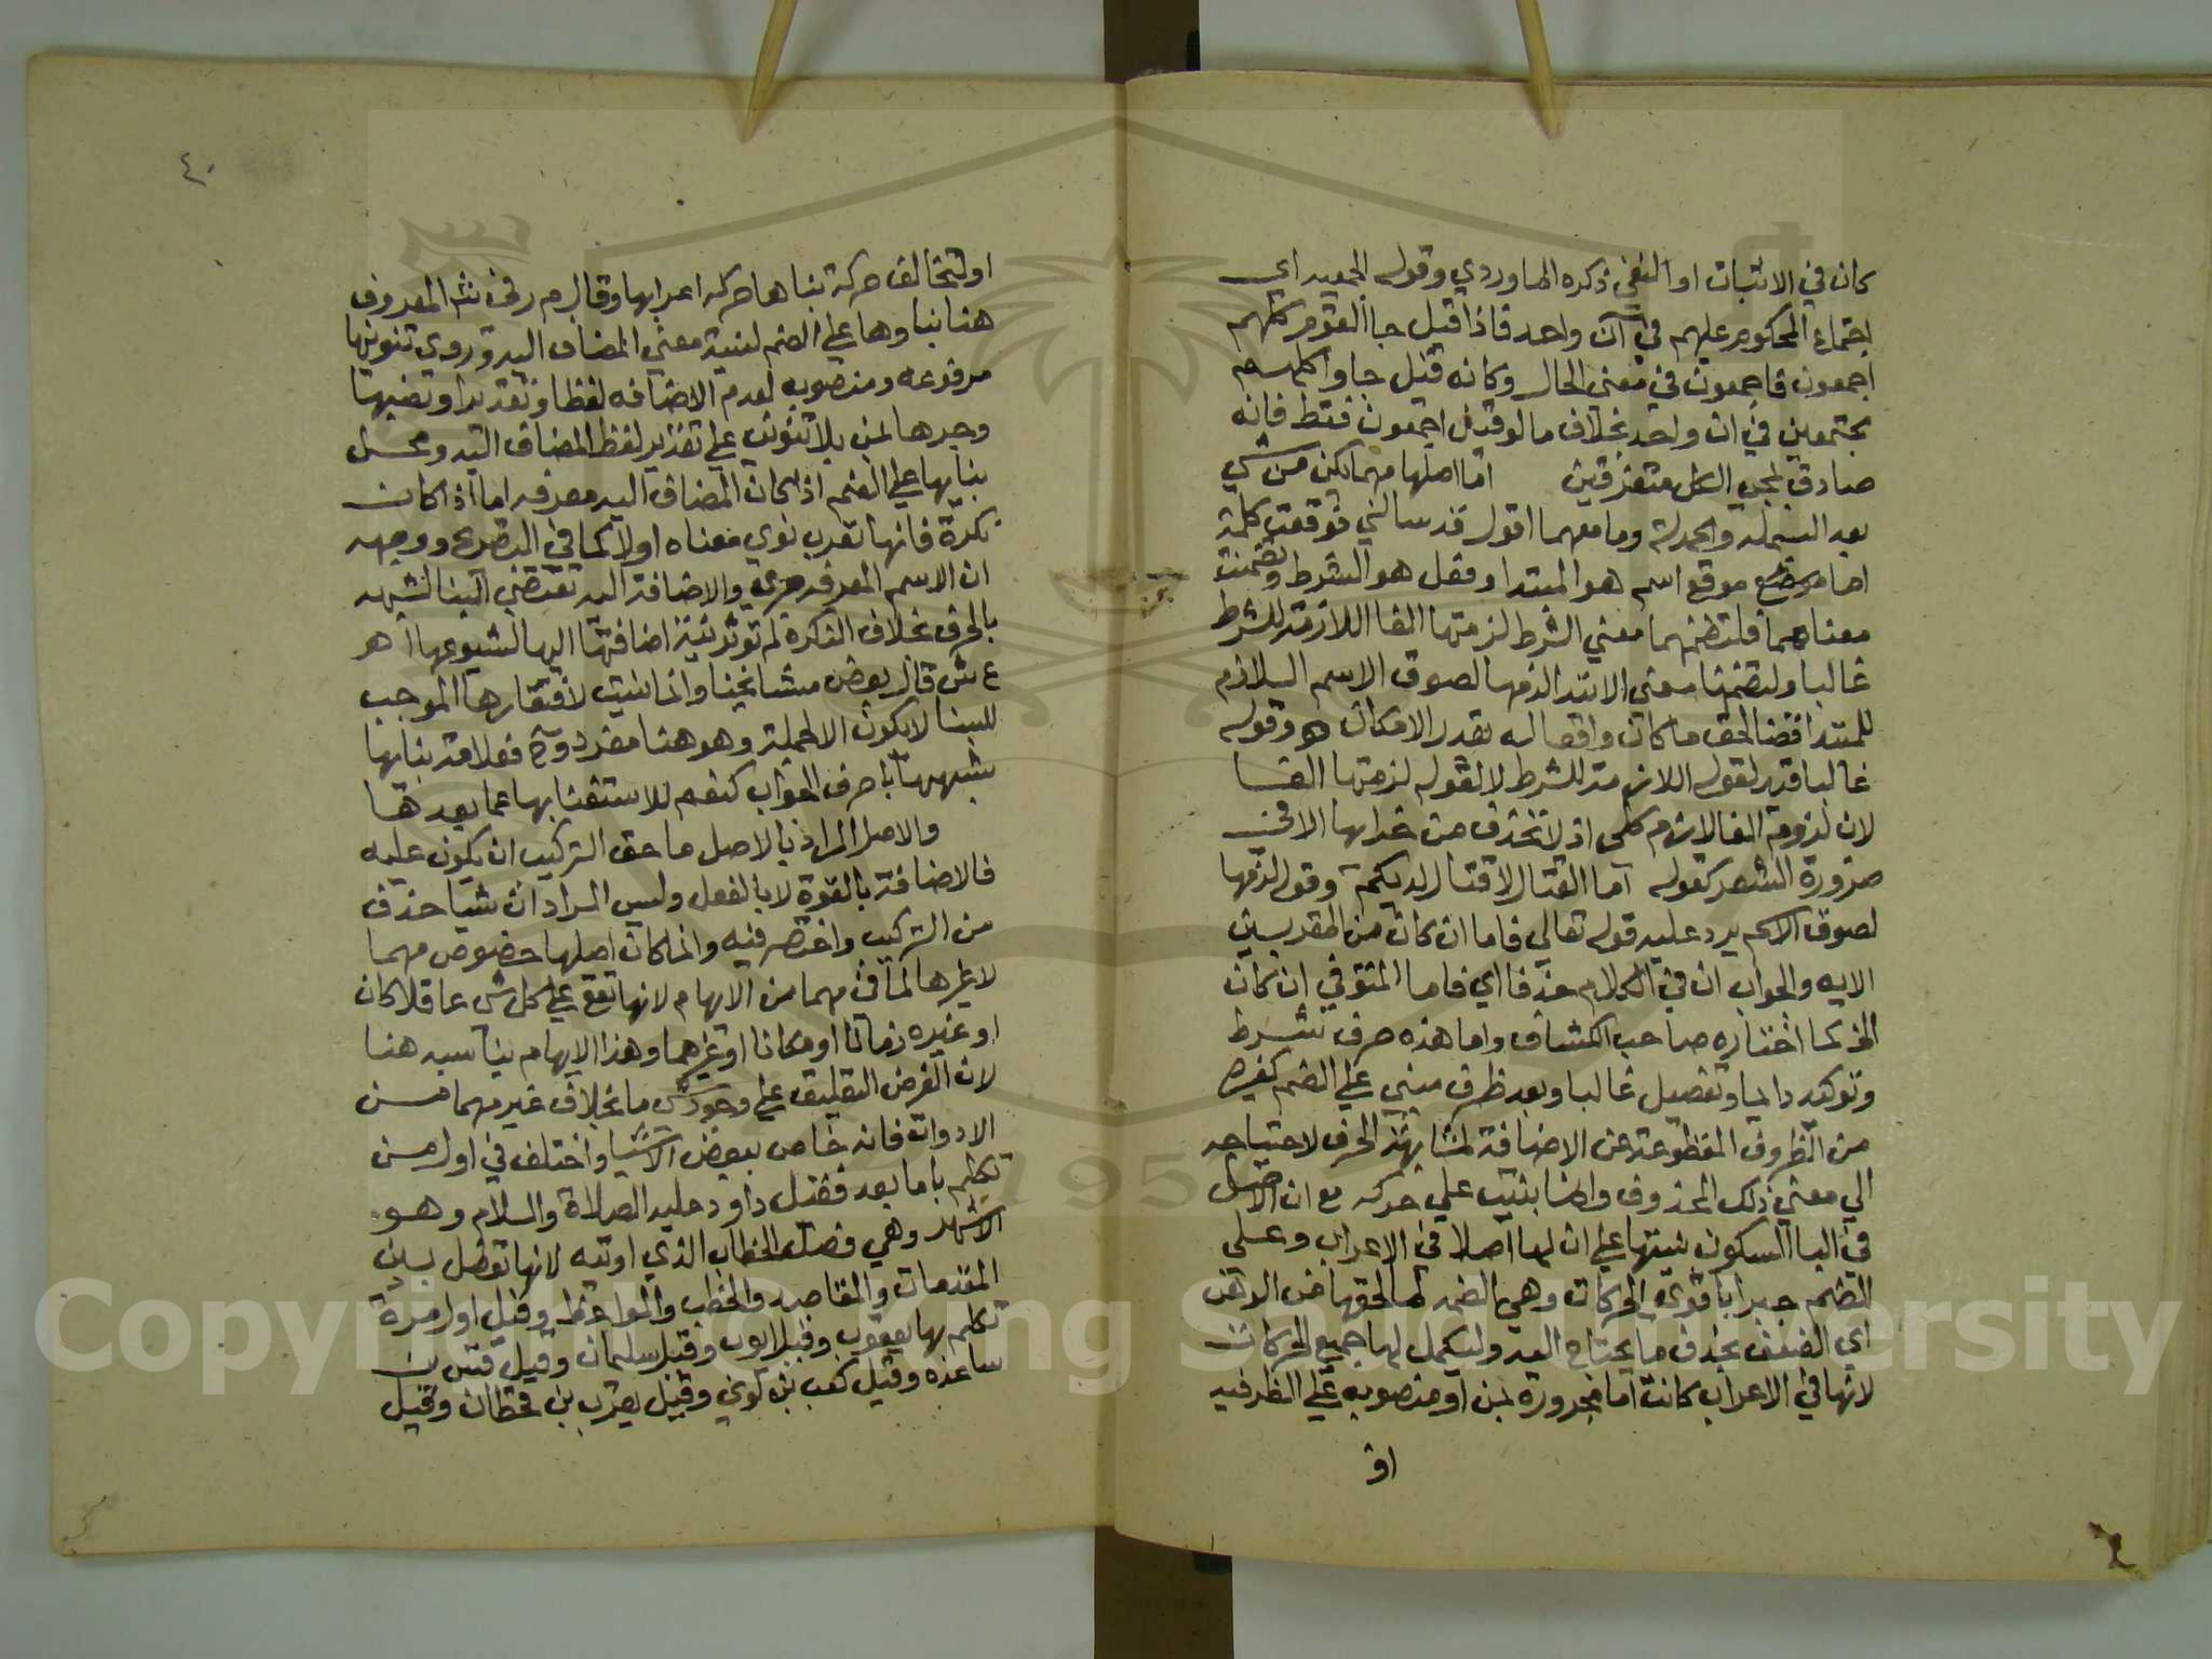 كان في الاثبات او النفي ذكره الماوردي وقوله الجميع اي
اجتماع المحكوم عليهم في آن واحد فاذا قيل جا القوم كلهم
اجمعون فاجمعون في معنى الحال وكانه قيل جاوا كلهم
مجتمعين في ان واحد بخلاف ما لو قيل اجمعون فقط فانه
صادق بمجي الكل متفرقين اما اصلها مهما يكن من شي
بعد البسملة والحمدلة وما معهما اقول قد سالني فوقعت كلمة
اما موقع اسم هو المبتدا وفعل هو الشرط وتضمنت
معناهما فلتضمنها معني الشرط لزمتها الفا اللازمة للشرط
غالبا ولتضمنها معني الابتدا لزمها لصوق الاسم اللازم
للمبتدا قضا لحق ما كان وابقا له بقدر الامكان وقوله
غالبا قيد لقوله اللازمة للشرط لا لقوله لزمتها الفا
لان لزومة الفا لازم كلي اذ لا تحذف من جوابها الا في
ضرورة الشعر كقوله اما القتال لا قتال لديكم وقوله لزمها
لصوق الاسم يرد عليه قوله تعالي فاما ان كان من المقربين
الايه والجواب ان في الكلام حذفا اي فاما المتوفي ان كان
الخ كما اختاره صاحب الكشاف واما هذه حرف شرط
وتوكيد دايما وتفصيل غالبا وبعد ظرف مبني علي الضم كغيره
من الظروف المقطوعة عن الاضافة لمشابهته الحرف لاحتياجه
الي معني ذلك المحذوف وانما بنيت علي حركه مع ان الاصل
في البنا السكون تنبيها علي ان لها اصلا في الاعراب وعلي
الضم جبرا باقوي الحركات وهي الضمه لما لحقها من الوهن
اي الضعف بحذف ما يحتاج اليه ولتكمل لها جميع الحركات
لانها في الاعراب كانت اما مجرورة بمن او منصوبه علي الظرفيه
او
٤٠
او لتخالف حركة بناها حركه اعرابها وقال م ر في شرح المعروف
هنا بناوها علي الضم لنية معني المضاف اليه وروي تنوينها
مرفوعه ومنصوبه لعدم الاضافه لفظا وتقديرا ونصبها
وجرها بمن بلا تنوين علي تقدير لفظ المضاف اليه ومحل
بنايها علي الضم اذا كان المضاف اليه معرفه اما اذا كان
نكرة فانها تعرب نوي معناه اولا كما في التصريح ووجهه
ان الاسم المعرفه جزي والاضافة اليه تقتضي البنا لشبهه
بالحرف بخلاف النكرة لم توثر نية اضافتها اليها لشيوعها اهـ
ع ش قال بعض مشايخنا وانما بنيت لافتقارها الموجب
للبنا لا يكون الا لجملة وهو هنا مفرد فعلامة بنايها
شبهها باحرف الجواب كنعم للاستغنا بها عما بعدها
والاصل المراد بالاصل ما حق التركيب ان يكون عليه
فالاضافة بالقوة لا بالفعل وليس المراد ان شيا حذف
من التركيب واختصر فيه وانما كان اصلها خصوص مهما
لا غيرها لما في مهما من الابهام لانها تقع علي كل شي عاقلا كان
او غيره زمانا او مكانا او غيرهما وهذا الابهام يناسبه هنا
لان الغرض التعليق علي وجود شي ما بخلاف غير مهما من
الادوات فانه خاص ببعض الاشيا واختلف في اول من
تكلم باما بعد فقيل داود عليه الصلاة والسلام وهو
الاشهر وهي فصل الخطاب الذي اوتيه لانها تفصل بين
المقدمات والمقاصد والخطب والمواعظ وقيل اول من
تكلم بها يعقوب وقيل ايوب وقيل سليمان وقيل قس بن
ساعده وقيل كعب بن لوي وقيل يعرب بن قحطان وقيل
Copyright © King Saud University
1957